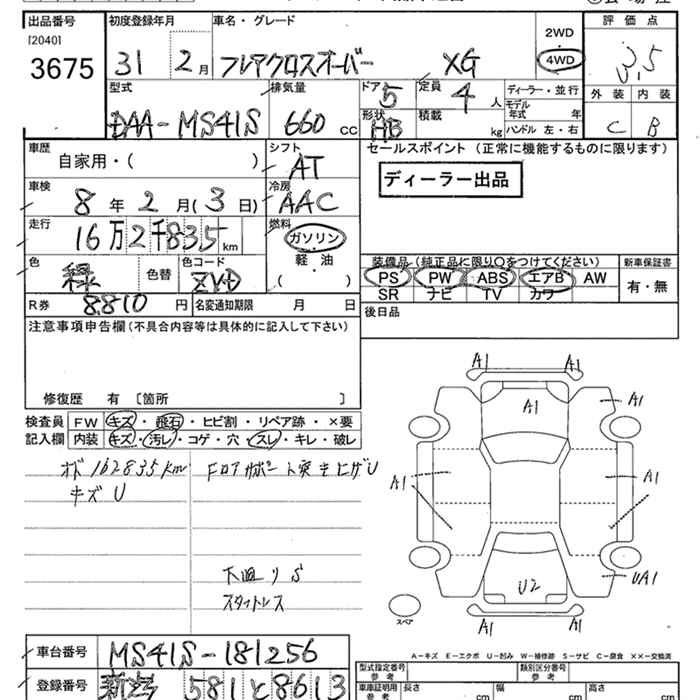 出品番号 初度登録年月 車名・グレード 評価点
[2040] 2WD
3675 31 2月 フレアクロスオーバー XG 4WD 3.5
型式 排気量 ドア 定員 ディーラー・並行 外装 内装
DAA-MS41S 660 CC 5 4人 モデル年式 年 C B
形状 HB 積載 kg ハンドル 左・右
車歴 シフト セールスポイント (正常に機能するものに限ります)
自家用・( ) AT
ディーラー出品
車検 冷房
8年 2月(3日) AAC
走行 燃料
16万2千835km ガソリン
軽・油
( )
色 色替 色コード 装備品 (純正品に限り○をつけてください) 新車保証書
緑 ZVD PS PW ABS エアB AW 有・無
SR ナビ TV カワ
R券 8,810円 名変通知期限 月 日 後日品
注意事項申告欄(不具合内容等は具体的に記入して下さい)
修復歴 有 [箇所 ]
検査員 FW キズ・飛石・ヒビ割・リペア跡・×要
記入欄 内装 キズ・汚レ・コゲ・穴・スレ・キレ・破レ
オド162835km
キズU
フロアサポート突キヒゲU
下廻りS
スタットレス
A1 A1
A1
A1
A1 A1
U2 UA1
A1 A1
スペア
A-キズ E-エクボ U-凹み W-補修跡 S-サビ C-腐食 XX-交換済
車台番号 MS41S-181256
登録番号 581 と 8613
型式指定番号 参考 類別区分番号 参考
車庫証明用 参考 長さ cm 幅 cm 高さ cm